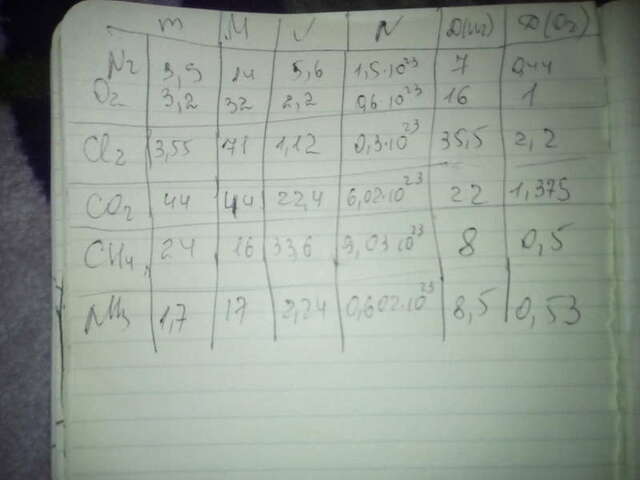 m M V N D(H2) D(O2)
N2 3,5 14 5,6 1,5·10^23 7 0,44
O2 3,2 32 2,2 0,6·10^23 16 1
Cl2 3,55 71 1,12 0,3·10^23 35,5 2,2
CO2 44 44 22,4 6,02·10^23 22 1,375
CH4 24 16 33,6 9,03·10^23 8 0,5
NH3 1,7 17 2,24 0,602·10^23 8,5 0,53